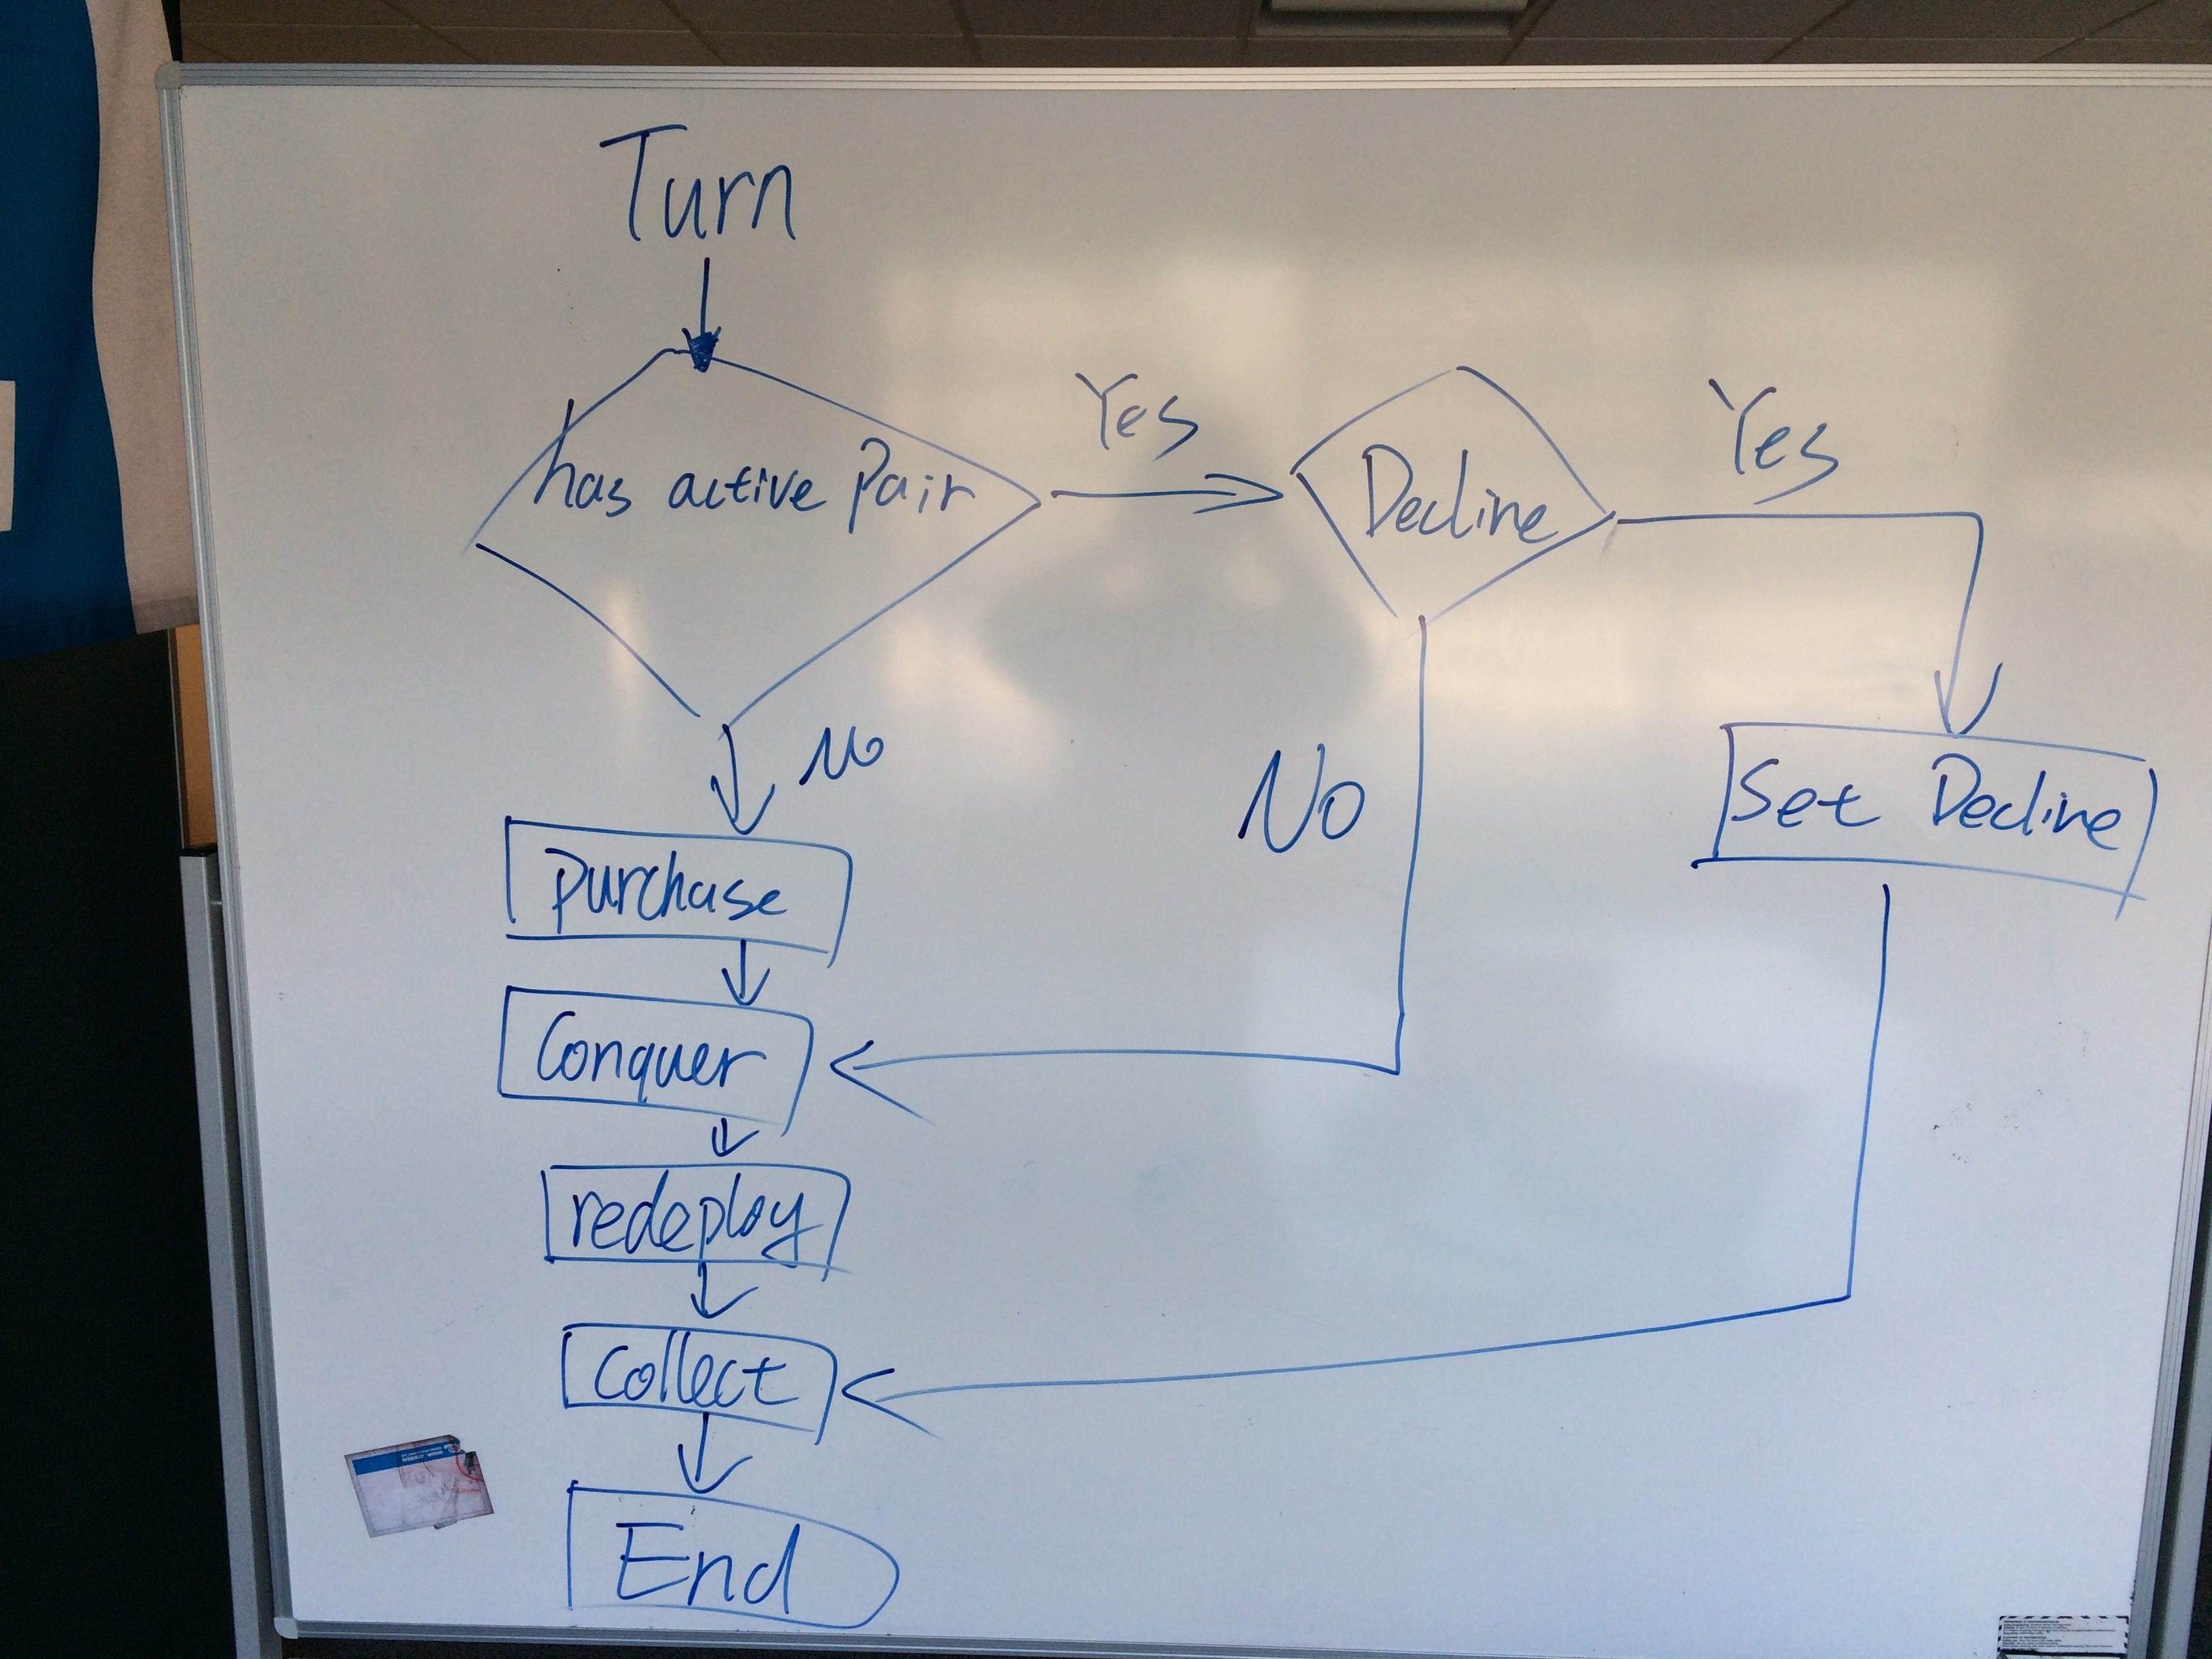 Turn
has active Pair
Yes
Decline
Yes
No
No
Set Decline
Purchase
Conquer
redeploy
Collect
End